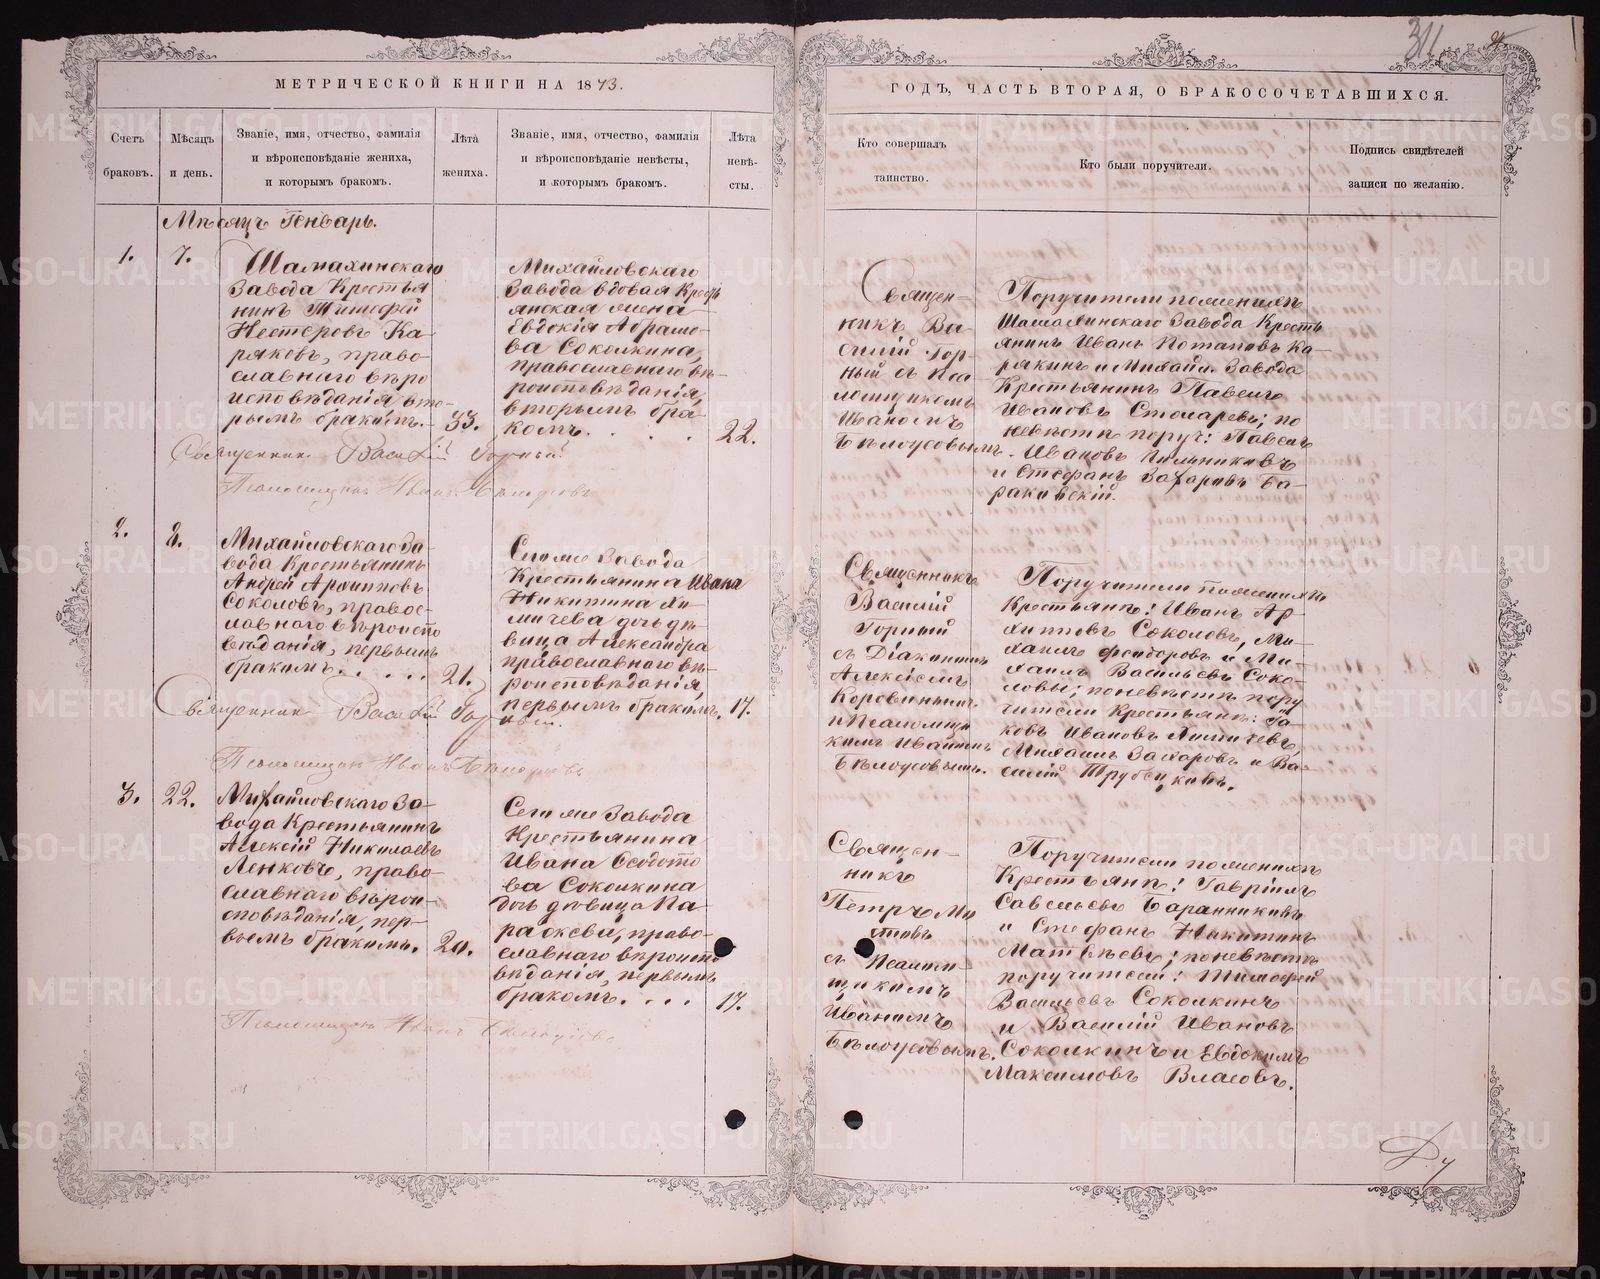 311
МЕТРИЧЕСКОЙ КНИГИ НА 1873.
ГОДЪ, ЧАСТЬ ВТОРАЯ, О БРАКОСОЧЕТАВШИХСЯ.
Счетъ
браковъ.
Мѣсяцъ
и день.
Званіе, имя, отчество, фамилія
и вѣроисповѣданіе жениха,
и которымъ бракомъ.
Лѣта
жениха.
Званіе, имя, отчество, фамилія
и вѣроисповѣданіе невѣсты,
и которымъ бракомъ.
Лѣта
невѣ-
сты.
Кто совершалъ
таинство.
Кто были поручители.
Подпись свидѣтелей
записи по желанію.
Мѣсяцъ Генварь.
1.
7.
Шамахинскаго
завода Крестья
нинъ Тимофей
Нестеровъ Ка-
ряковъ, право-
славнаго вѣро
исповѣданія, вто-
рымъ бракомъ.
33.
Михайловскаго
завода вдовая Кресть
янская жена
Евдокія Абрамо-
ва Соколкина,
православнаго вѣ-
роисповѣданія,
вторымъ бра-
комъ. . . . .
22.
Священ-
никъ Ва-
силій Гор-
ный съ Пса-
ломщикомъ
Иваномъ
Бѣлоусовымъ.
Поручители по женихѣ
Шамахинскаго завода Кресть
янинъ Иванъ Потаповъ Ка-
рякинъ и Михайл. завода
Крестьянинъ Павелъ
Ивановъ Столаревъ; по
невѣстѣ поруч: Павелъ
Ивановъ Пильниковъ
и Стефанъ Захаровъ Ба-
раковскій.
Священникъ Василій Горный
Псаломщикъ Иванъ Бѣлоусовъ
2.
8.
Михайловскаго за-
вода Крестьянинъ
Андрей Архиповъ
Соколовъ, правос-
лавнаго вѣроиспо
вѣданія, первымъ
бракомъ. . . . .
21.
Сегоже завода
Крестьянина Ивана
Никитина Хи-
мичева дочь дѣ-
вица Александра
православнаго вѣ-
роисповѣданія,
первымъ бракомъ.
17.
Священникъ
Василій
Горный
съ Діакономъ
Алексѣемъ
Коровинымъ
и Псаломщи
комъ Иваномъ
Бѣлоусовымъ.
Поручители по женихѣ
Крестьянѣ: Иванъ Ар-
хиповъ Соколовъ, Ми-
хаилъ Феодоровъ и Ми-
хаилъ Васильевъ Соко-
ловы; по невѣстѣ пору
чители Крестьянѣ: Я-
ковъ Ивановъ Химичевъ,
Михаилъ Захаровъ и Ва-
силій Трубенковъ.
Священникъ Василій Гор
ный.
Псаломщикъ Иванъ Бѣлоусовъ
3.
22.
Михайловскаго за-
вода Крестьянинъ
Алексій Николаевъ
Ленковъ, право-
славнаго вѣрои-
сповѣданія, пер-
вымъ бракомъ.
20.
Сегоже завода
Крестьянина
Ивана Ѳедото
ва Соколкина
дочь дѣвица Па-
раскева, право-
славнаго вѣроиспо
вѣданія, первымъ
бракомъ. . . .
17.
Священ-
никъ
Петръ Ми
съ Псалом-
щикомъ
Иваномъ
Бѣлоусовымъ.
Поручители по женихѣ
Крестьянѣ: Гавріилъ
Савельевъ Баранниковъ
и Стефанъ Никитинъ
Матвѣевъ; по невѣстѣ
поручители: Тимофей
Васильевъ Соколкинъ
и Василій Ивановъ
Соколкинъ и Евдокимъ
Максимовъ Власовъ.
Псаломщикъ Иванъ Бѣлоусовъ
METRIKI.GASO-URAL.RU